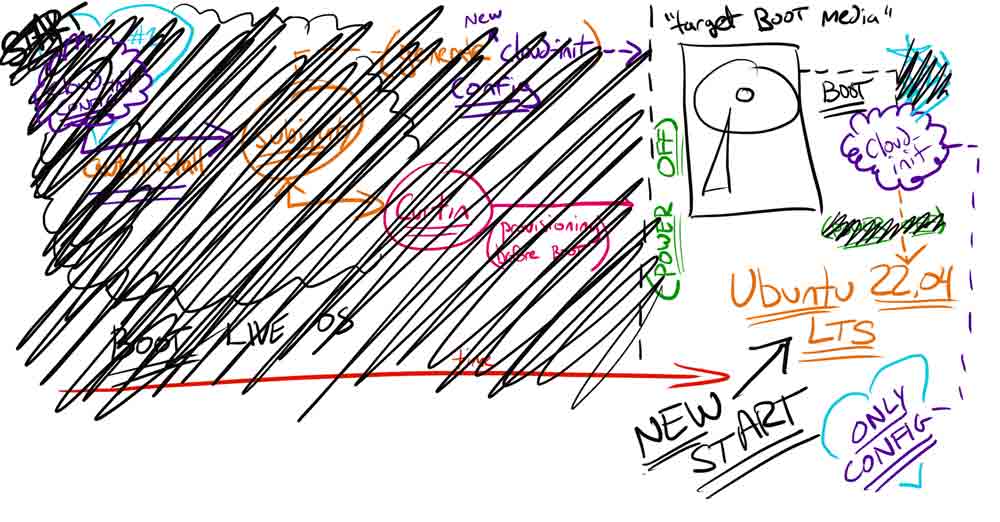 START
#1
cloud init
CONFIG
autoinstall
Subiquity
(generate
New
cloud-init)
Config
Curtin
(provisioning
before BOOT)
BOOT LIVE OS
time
(POWER OFF)
"target BOOT Media"
BOOT
Cloud
init
Ubuntu 22.04
LTS
NEW
START
ONLY
CONFIG